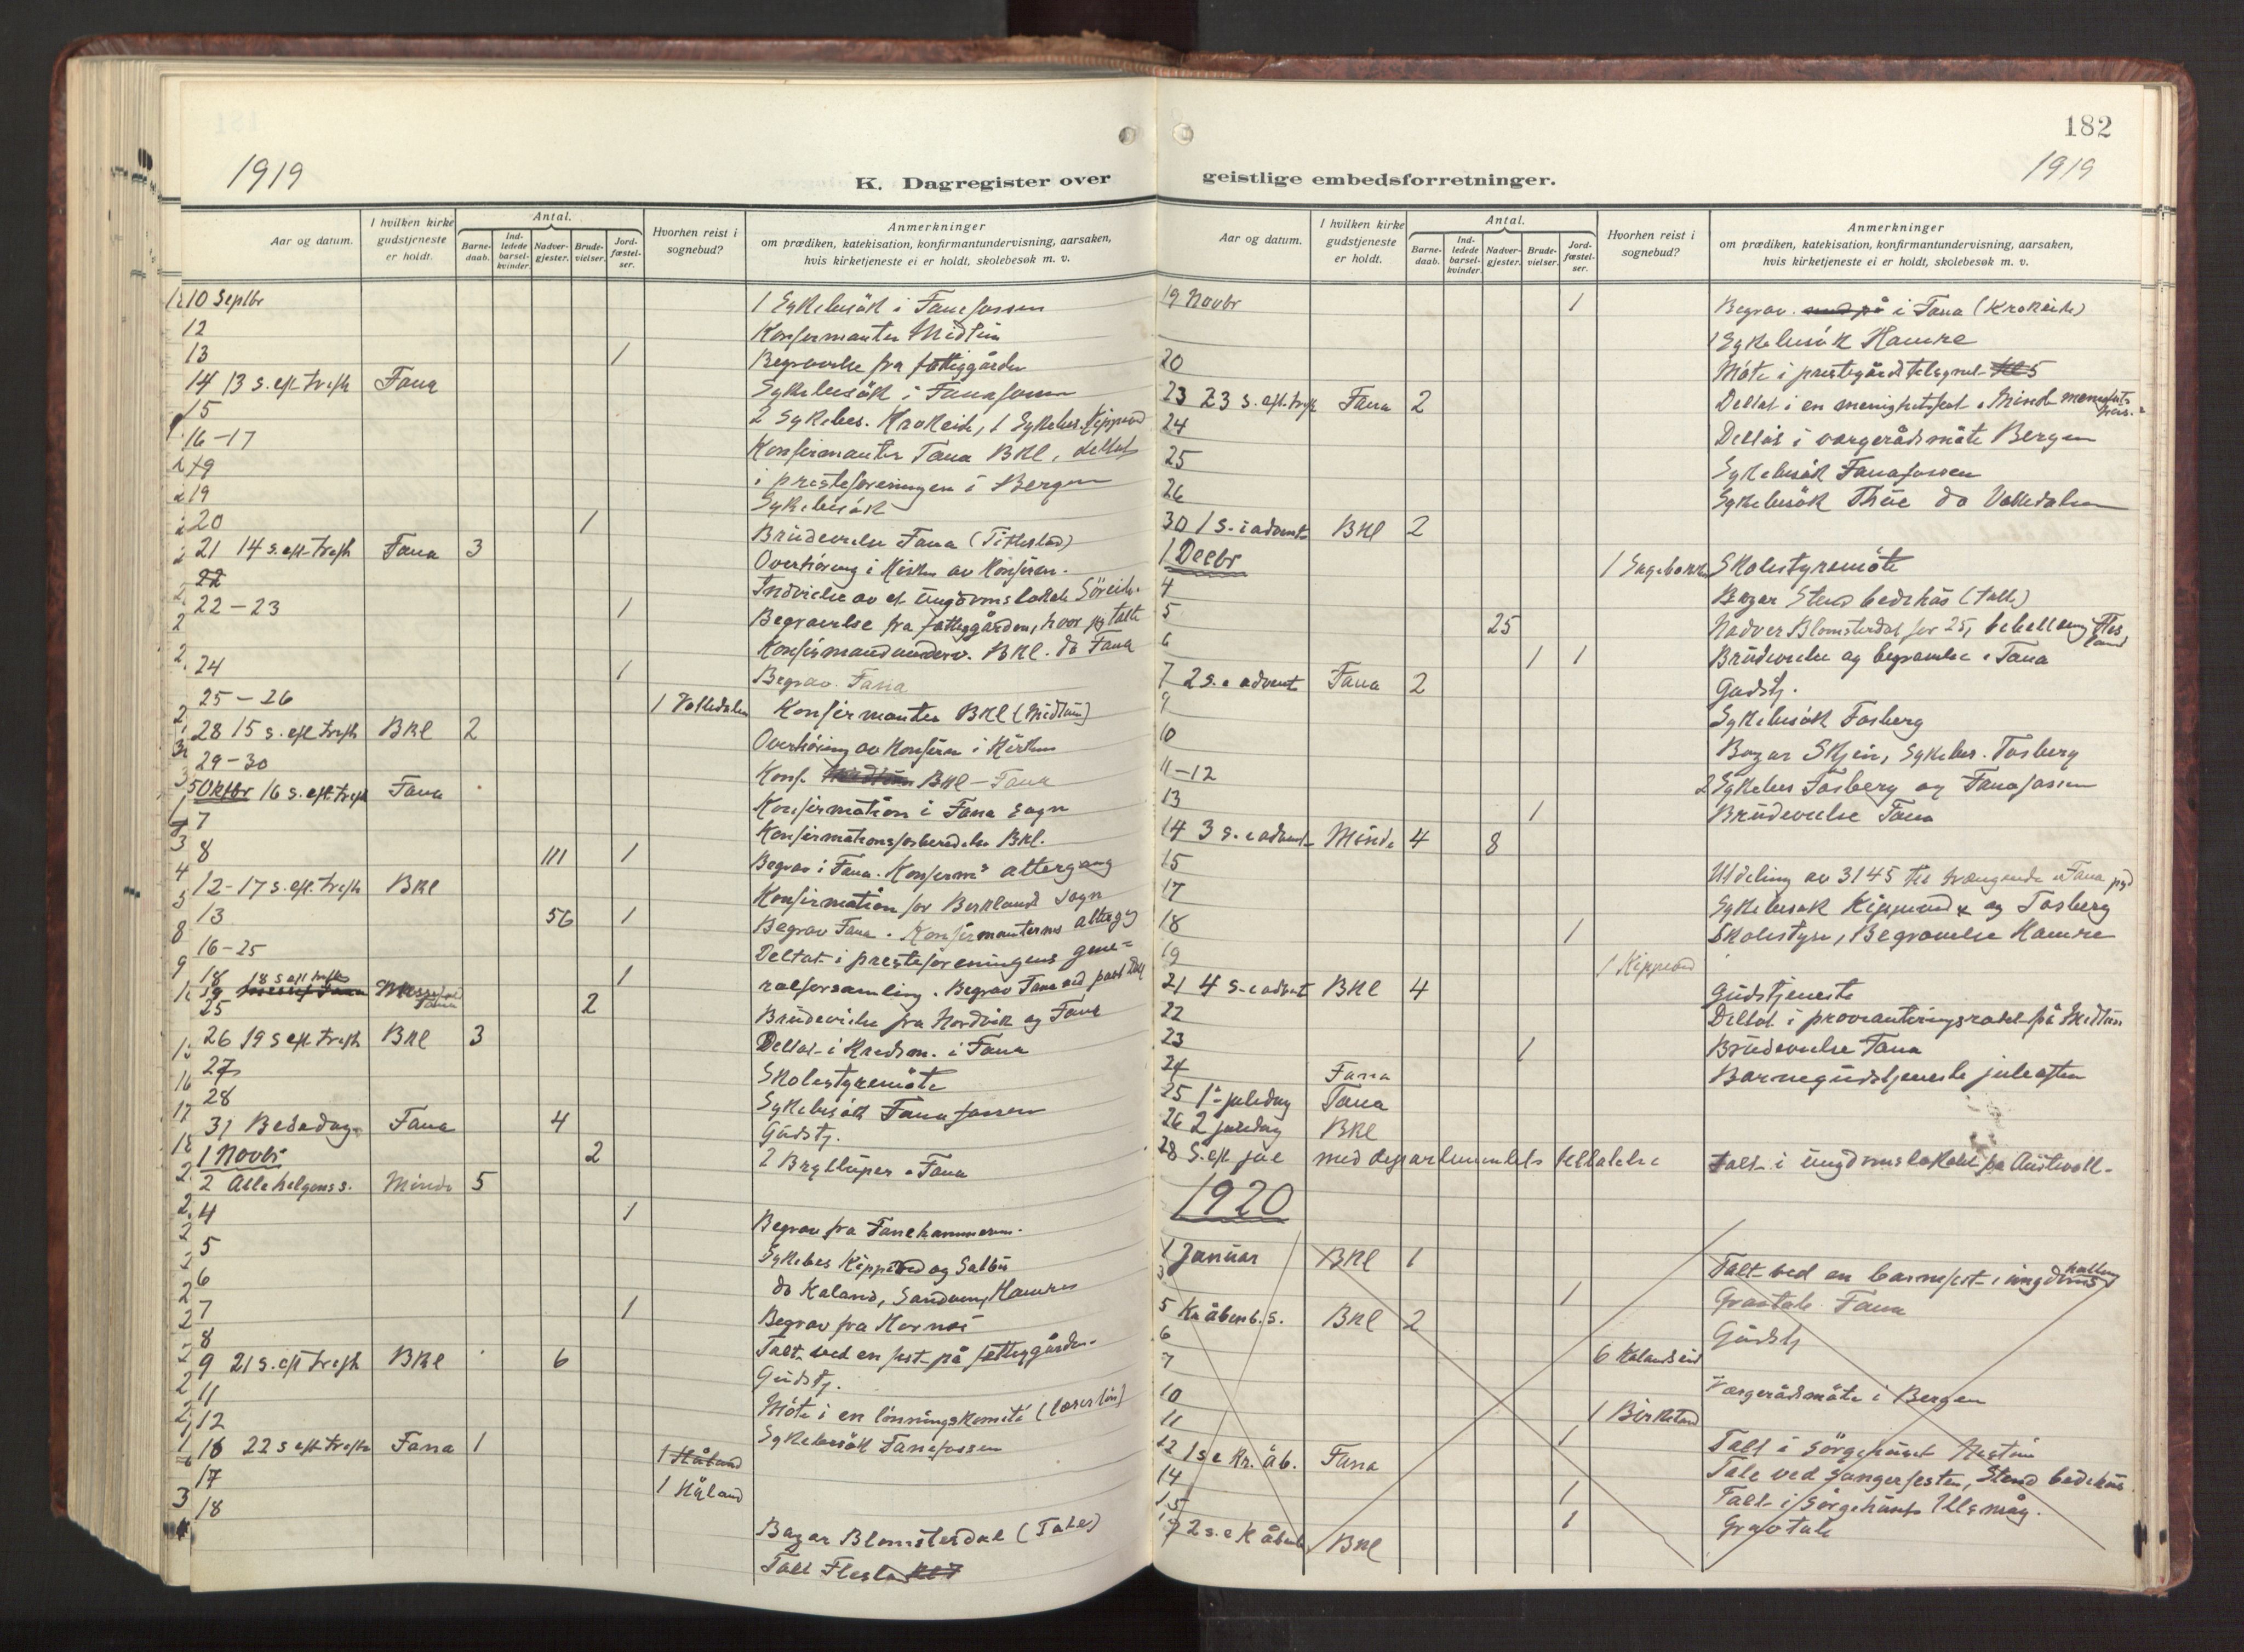 182
1919
1919
K. Dagregister over
geistlige embedsforretninger.
Aar og datum.
I hvilken kirke gudstjeneste er holdt.
Antal.
Barne-daab.
Ind-ledede barsel-kvinder.
Nadver-gjester.
Brude-vielser.
Jord-fæstel-ser.
Hvorhen reist i sognebud?
Anmerkninger
om prædiken, katekisation, konfirmantundervisning, aarsaken,
hvis kirketjeneste ei er holdt, skolebesøk m. v.
10 Septbr 1 Sykebesök i Fanafossen
12 Konfirmanter Midtun
13 1 Begravelse fra fattiggården
14 13 s. eft. trefh Fana Sykebesök i Fanafossen
15 2 Sykebes. Krokeide, 1 Sykebes. Kippersd
16-17 Konfirmanter Fana BKl, deltat
i presteforeningen i Bergen
19 Sykebesök
20 1 Brudevielse Fana
21 14 s. eft. trefh Fana 3 Overhöring i Kirken av Konfirm.
22 Indvielse av et ungdomslokale Söreide
22-23 1 Begravelse fra fattiggården, hvor jeg talte
Konfirmandunderv. BKl. do Fana
24 1 Begrav. Fana
25-26 1 Kaldedalen Konfirmanter BKl (Midtun)
28 15 s. eft. trefh BKl 2 Overhöring av Konfirm i Kirken
29-30 Konf. BKl - Fana
5 Oktbr 16 s. eft. trefh Fana Konfirmation i Fana sogn
7 Konfirmationsforberedelse BKl.
8 111 1 Begrav i Fana. Konfirm's altergang
12-17 s. eft. trefh BKl Konfirmation for Birkland sogn
13 56 1 Begrav Fana. Konfirmanternes alterg
16-25 Deltat i presteforeningens gene=
18 1 ralforsamling. Begrav Fana ved past
25 2 Brudevielse fra Nordvik og Fana
26 19 s eft trefh BKl 3 Deltat i Kredsm. i Fana
27 Skolestyremöte
28 Sykebesök Fanafossen
31 Bededag Fana 4 Gudstj.
1 Novbr 2 2 Brylluper i Fana
2 Allehelgens s. Minde 5
4 1 Begrav fra Fanehammeren.
5 Sykebes Kippersd og Salbu
6 do Kaland, Sandven, Hamre
7 1 Begrav fra
8 Talt ved en fest på fattiggården.
9 21 s. eft trefh BKl 6 Gudstj.
11 Möte i en lönningskomité
12 Sykebesök Fanafossen
16 22 s eft trefh Fana 1 1 Håland
17 1 Håland
18 Bazar Blomsterdal (Tale)
Talt
Aar og datum.
I hvilken kirke gudstjeneste er holdt.
Antal.
Barne-daab.
Ind-ledede barsel-kvinder.
Nadver-gjester.
Brude-vielser.
Jord-fæstel-ser.
Hvorhen reist i sognebud?
Anmerkninger
om prædiken, katekisation, konfirmantundervisning, aarsaken,
hvis kirketjeneste ei er holdt, skolebesøk m. v.
19 Novbr 1 Begrav. i Fana (Krokeide)
1 Sykebesök Hamre
20 Möte i prestegårdstilsynet
23 23 s. eft. trefh Fana 2 Deltat i en menighetsfest i Minde menighets
24 Deltat i vergerådsmöte Bergen
25 Sykebesök Fanafossen
26 Sykebesök do
30 1 s. i advent BKl 2
1 Decbr 1 Skolestyremöte
4 Bazar Stend bedehus (Talte)
5 25 Nadver Blomsterdal for 25, bibellesning Flesland
6 1 1 Brudevielse og begravelse i Fana
7 2 s. i advent Fana 2 Gudstj.
9 Sykebesök Fosberg
10 Bazar Skjen, Sykebes. Fosberg
11-12 2 Sykebes Fosberg og Fanafossen
13 1 Brudevielse Fana
14 3 s. i advent Minde 4 8
15 Utdeling av 3145 til trængende i Fana pgd
17 Sykebesök Kippersd og Fosberg
18 1 Skolestyre, Begravelse Hamre
19 1 Kippersd
21 4 s. i advent BKl 4 Gudstjeneste
22 Deltat i provianteringsrådet på Midtun
23 1 Brudevielse Fana
24 Fana Barnegudstjeneste juleaften
25 1ste juledag Fana
26 2 juledag BKl
28 S. eft jul med departementets tilladelse Talt i ungdomslokalet på Austevoll
1920
1 Januar BKl 1 Talt ved en barnefest i ungdomshallen
3 1 Gravtale Fana
5 Kr åbenb. s. BKl 2 Gudstj
6 6 Kalandseid
7 Vergerådsmöte i Bergen
10 1 Birkeland
11 1 Talt i sörgehuset
12 1 s e Kr. åb. Fana Tale ved sangerfesten, Stend bedehus
14 1 Talt i sörgehuset
15 1 Gravtale
2 s. e K åbenb BKl